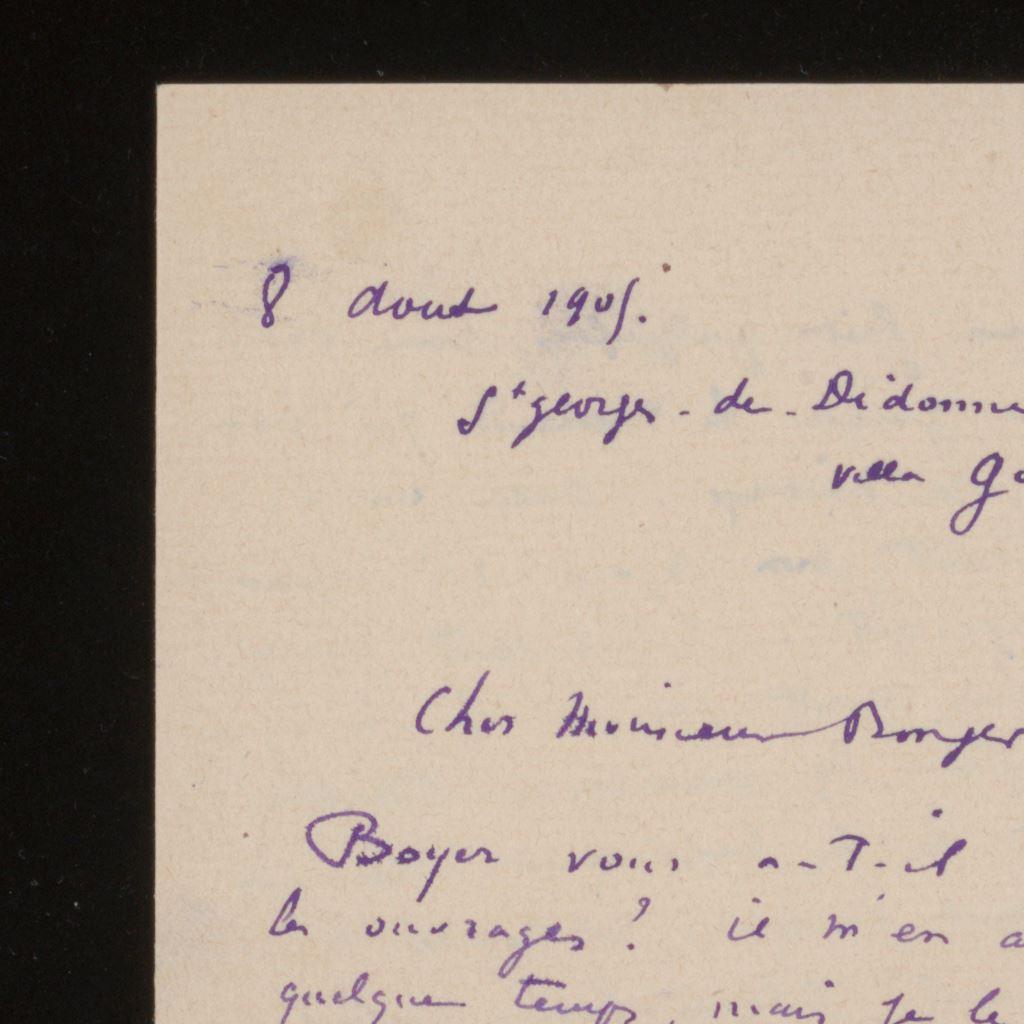 8 aout 1905.
St georges - de - Didonne
villa
Cher Monsieur Bonger
Boyer vous a-T-il
les ouvrages ? il m'en a
quelque temps, mais je le